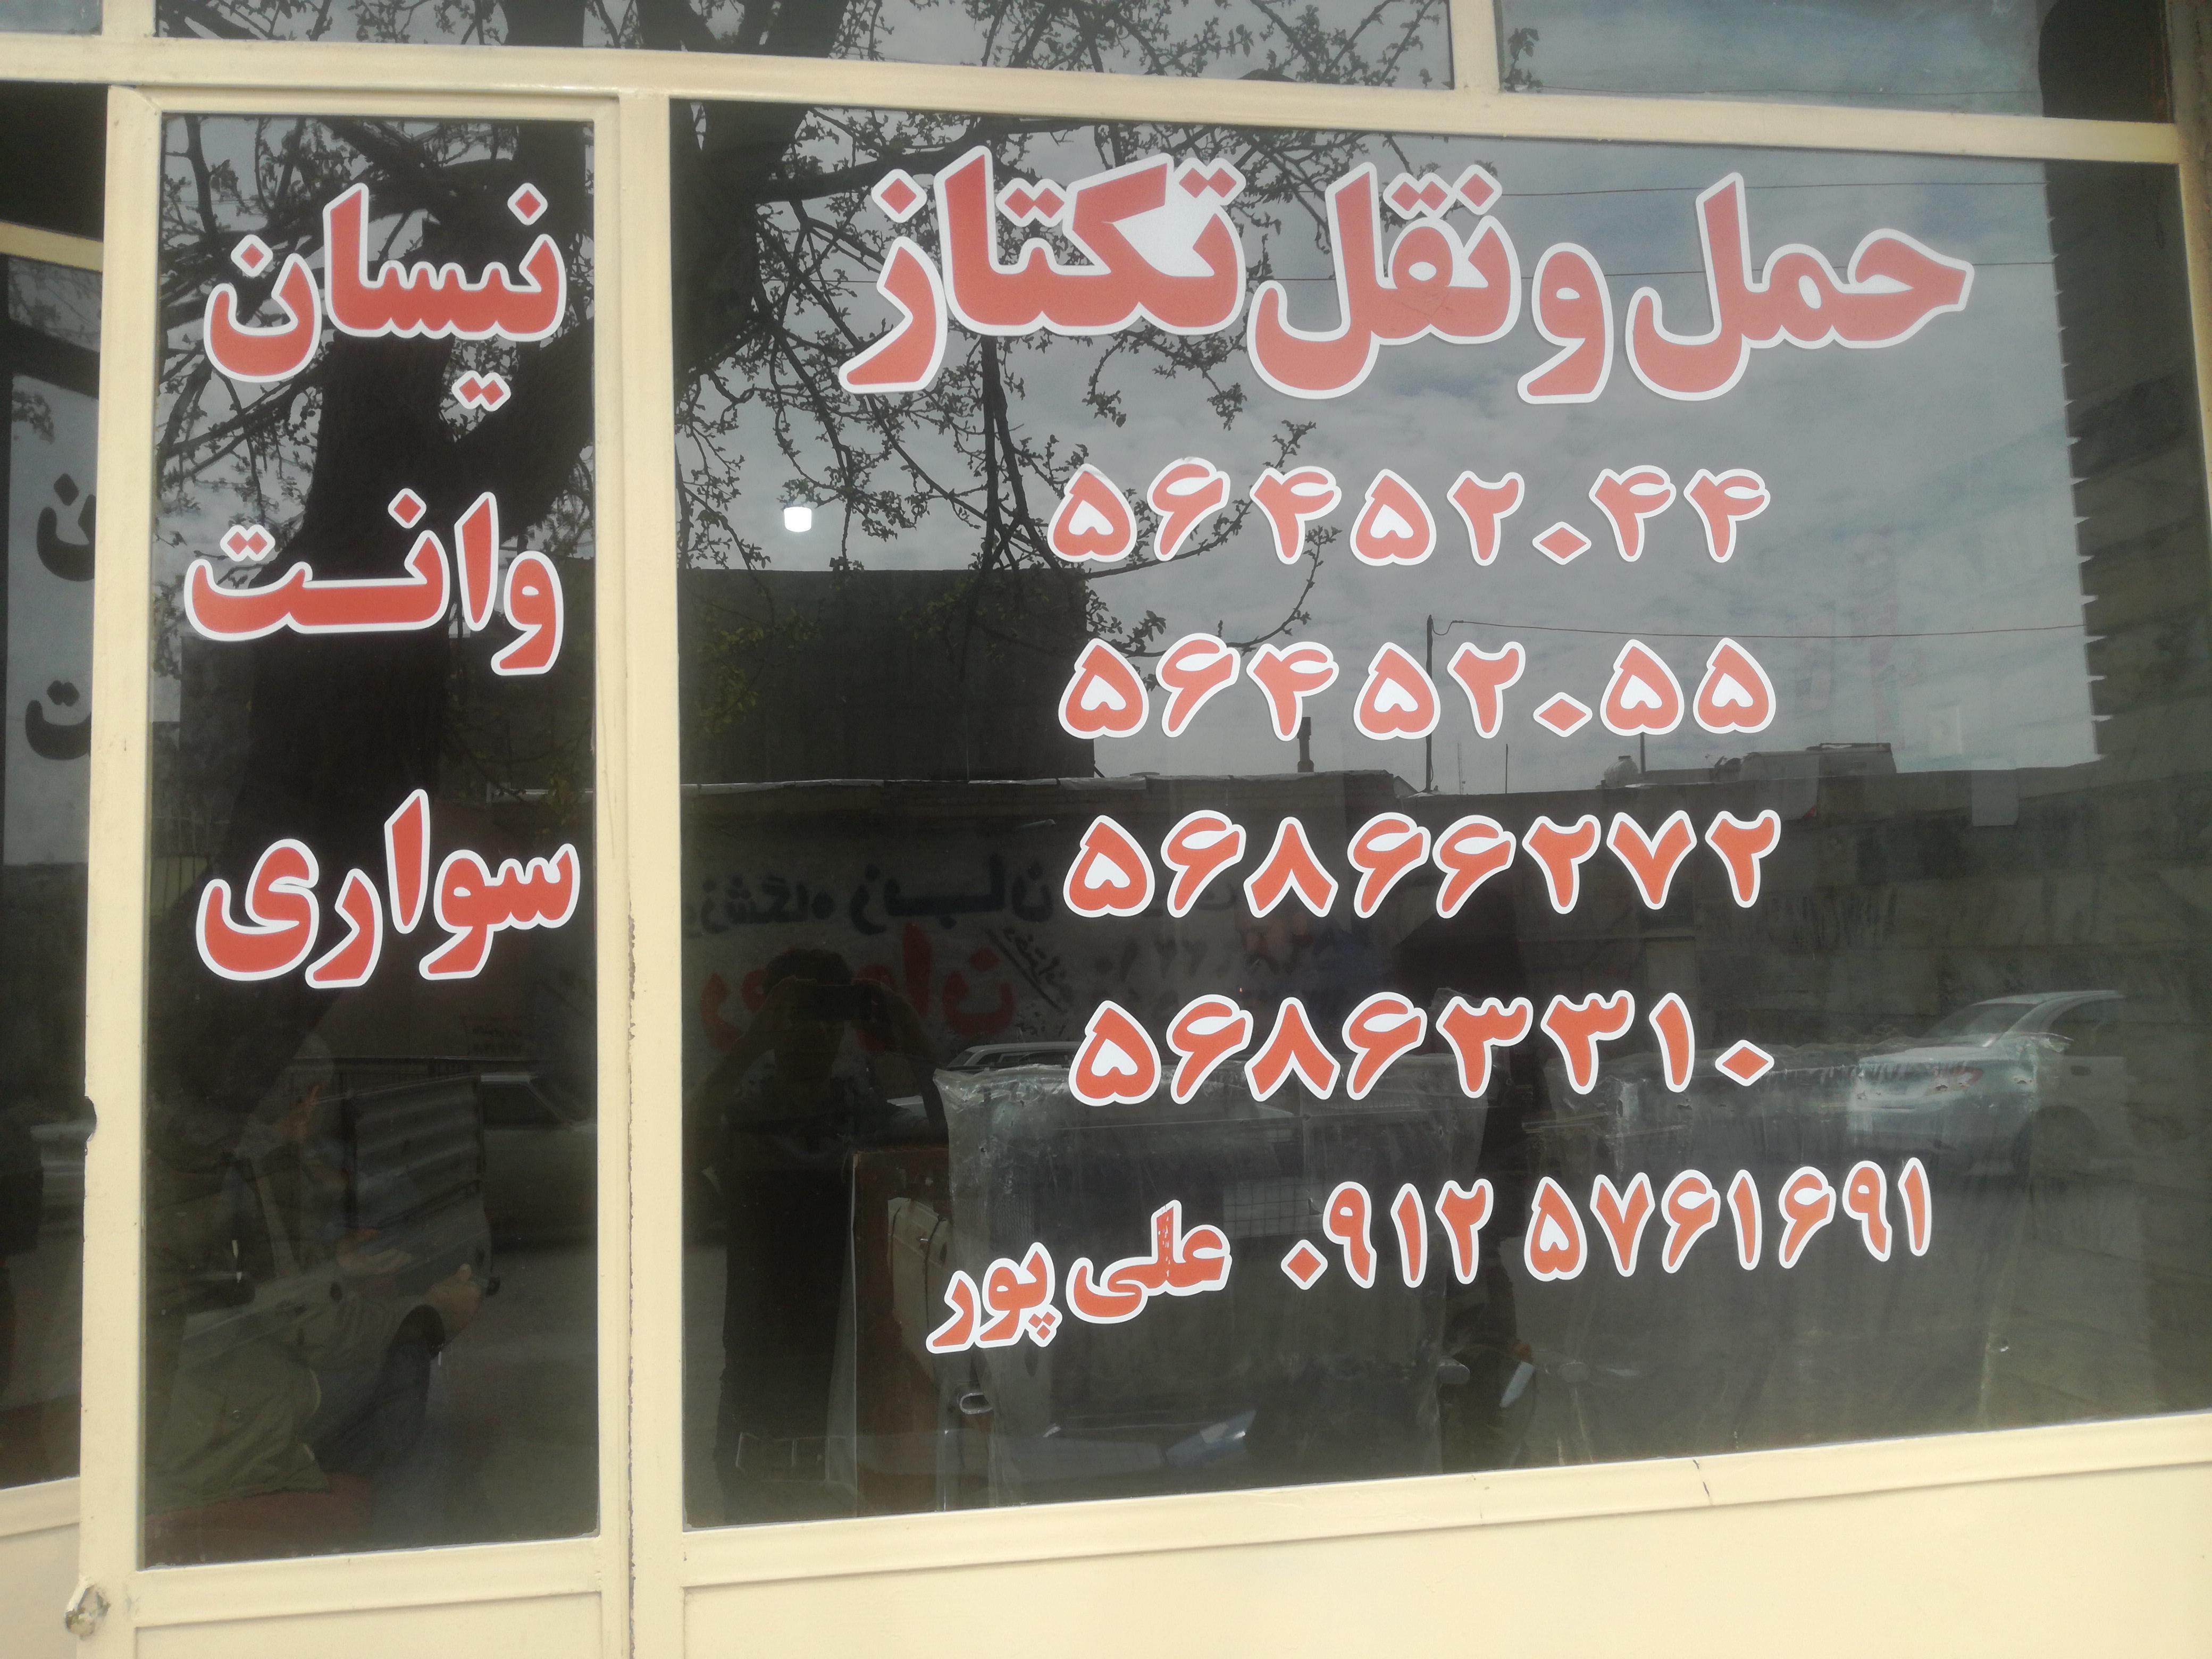 حمل و نقل تکتاز
۵۶۴۵۲۰۴۴
۵۶۴۵۲۰۵۵
۵۶۸۶۶۲۷۲
۵۶۸۶۳۳۱۰
۰۹۱۲ ۵۷۶۱۶۹۱ علی پور
نیسان
وانت
سواری